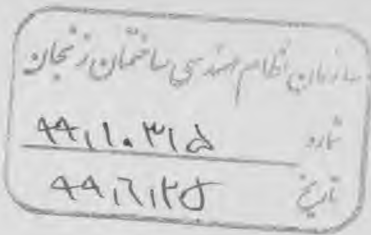 سازمان نظام مهندسی ساختمان زنجان
شماره ۹۹،۱۰۳۱۵
تاریخ ۹۹،۶،۲۵